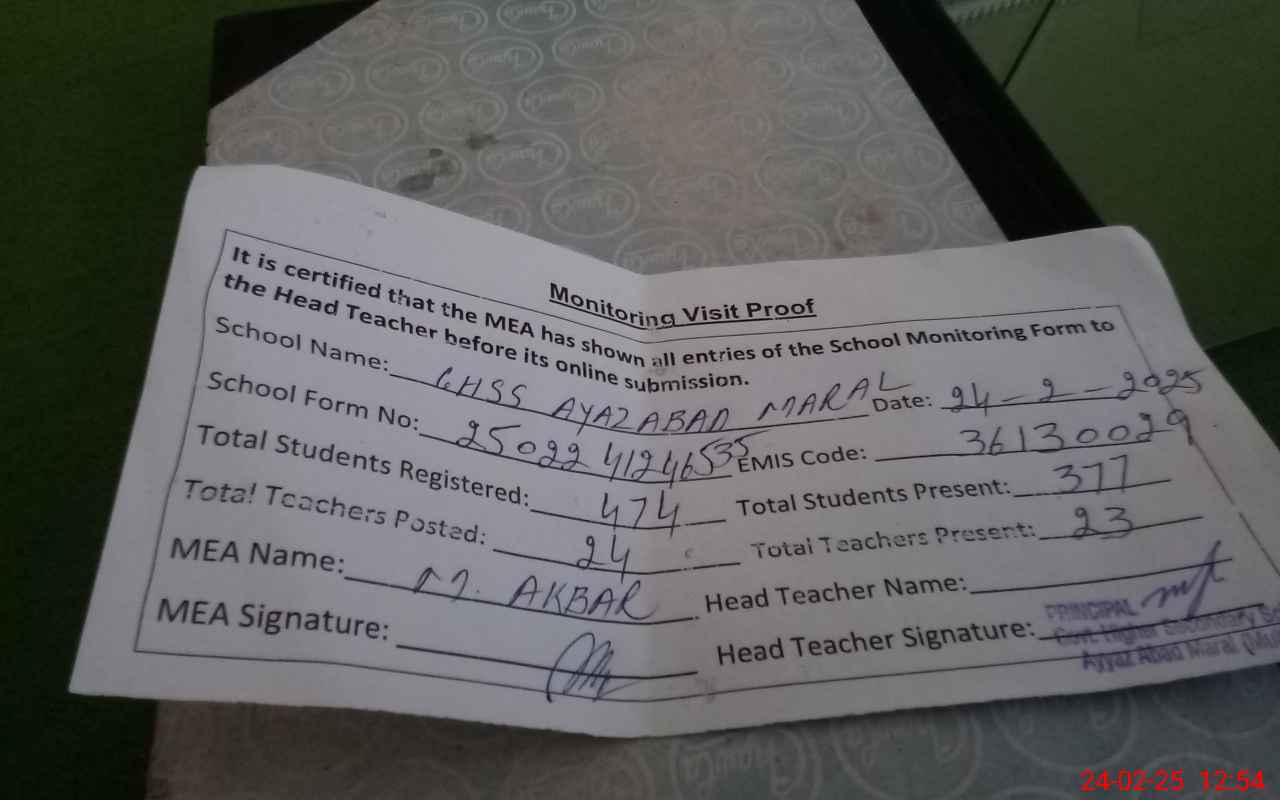 Monitoring Visit Proof
It is certified that the MEA has shown all entries of the School Monitoring Form to
the Head Teacher before its online submission.
School Name: GHSS AYAZABAD MARAL Date: 24-2-2025
School Form No: 25022441246535 EMIS Code: 36130029
Total Students Registered: 474 Total Students Present: 377
Total Teachers Posted: 24 Total Teachers Present: 23
MEA Name: M. AKBAR Head Teacher Name:
MEA Signature: Head Teacher Signature:
PRINCIPAL
Govt. Higher Secondary
Ayyaz Abad Maral
24-02-25 12:54